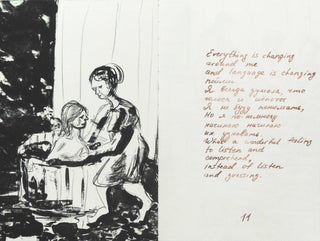 Everything is changing
around me
and language is changing
Я всегда думала, что
голоса и шепоты
Я не буду понимать,
Но я по-тихоньку
начинаю
их узнавать.
What a wonderful feeling
to listen and
comprehend,
instead of listen
and guessing.
11